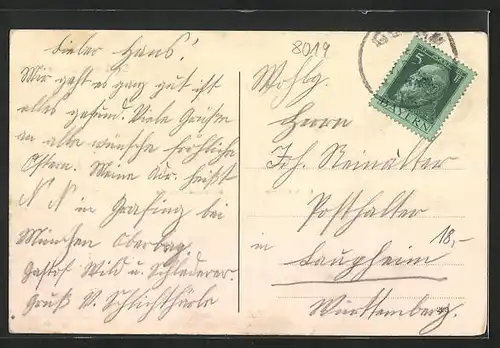 Lieber Hans!
Mir geht es ganz gut ist
alles gesund. Viele Grüße
an alle wünsche fröhliche
Ostern. Meine Adr. heißt
N N in Grafing bei
München Oberbay.
Gasthof Wild u. Schlederer.
Gruß V. Schlichthärle
8019
5
BAYERN
Wohlg.
Herrn
Joh. Steinalter
Posthalter
18,-
in Laupheim
Württemberg.